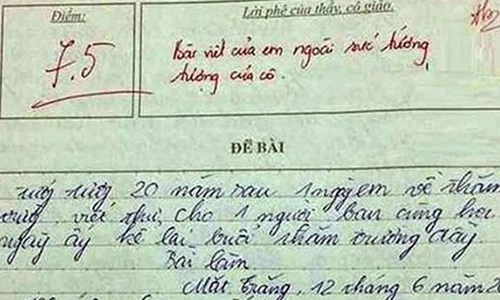 Điểm:
Lời phê của thầy, cô giáo.
7.5
Bài viết của em ngoài sức tưởng
tượng của cô.
ĐỀ BÀI
tưởng tượng 20 năm sau 1 ngày em về thăm
trường, viết thư cho 1 người bạn cùng học
ngày ấy kể lại buổi thăm trường đấy.
Bài làm
Mặt Trăng, 12 tháng 6 năm